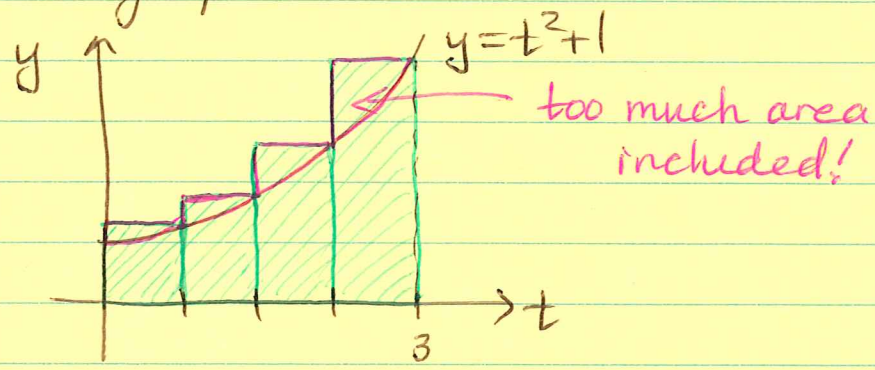 y
y=t²+1
too much area
included!
t
3